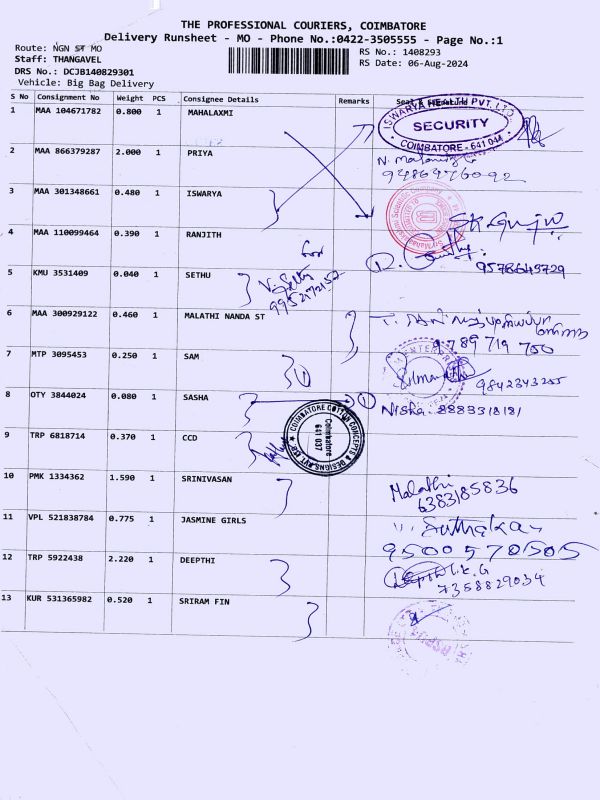 THE PROFESSIONAL COURIERS, COIMBATORE
Delivery Runsheet - MO - Phone No.:0422-3505555 - Page No.:1
Route: NGN ST MO
RS No.: 1408293
Staff: THANGAVEL
RS Date: 06-Aug-2024
DRS No.: DCJB140829301
Vehicle: Big Bag Delivery
S No Consignment No Weight PCS Consignee Details Remarks Seal &
1 MAA 104671782 0.800 1 MAHALAXMI
ISWARYA HEALTH PVT. LTD.
SECURITY
COIMBATORE - 641 044
2 MAA 866379287 2.000 1 PRIYA
3 MAA 301348661 0.480 1 ISWARYA
4 MAA 110099464 0.390 1 RANJITH
9578649729
5 KMU 3531409 0.040 1 SETHU
for
V. Sethu
9952172157
6 MAA 300929122 0.460 1 MALATHI NANDA ST
9789719750
7 MTP 3095453 0.250 1 SAM
1
9842343255
8 OTY 3844024 0.080 1 SASHA
1
Nisha. 8883318181
9 TRP 6818714 0.370 1 CCD
COIMBATORE COTTON CONCEPTS & DESIGNS PVT. LTD.
Coimbatore
641 037
10 PMK 1334362 1.590 1 SRINIVASAN
Malathi
6383185836
11 VPL 521838784 0.775 1 JASMINE GIRLS
9500570505
12 TRP 5922438 2.220 1 DEEPTHI
7358829034
13 KUR 531365982 0.520 1 SRIRAM FIN